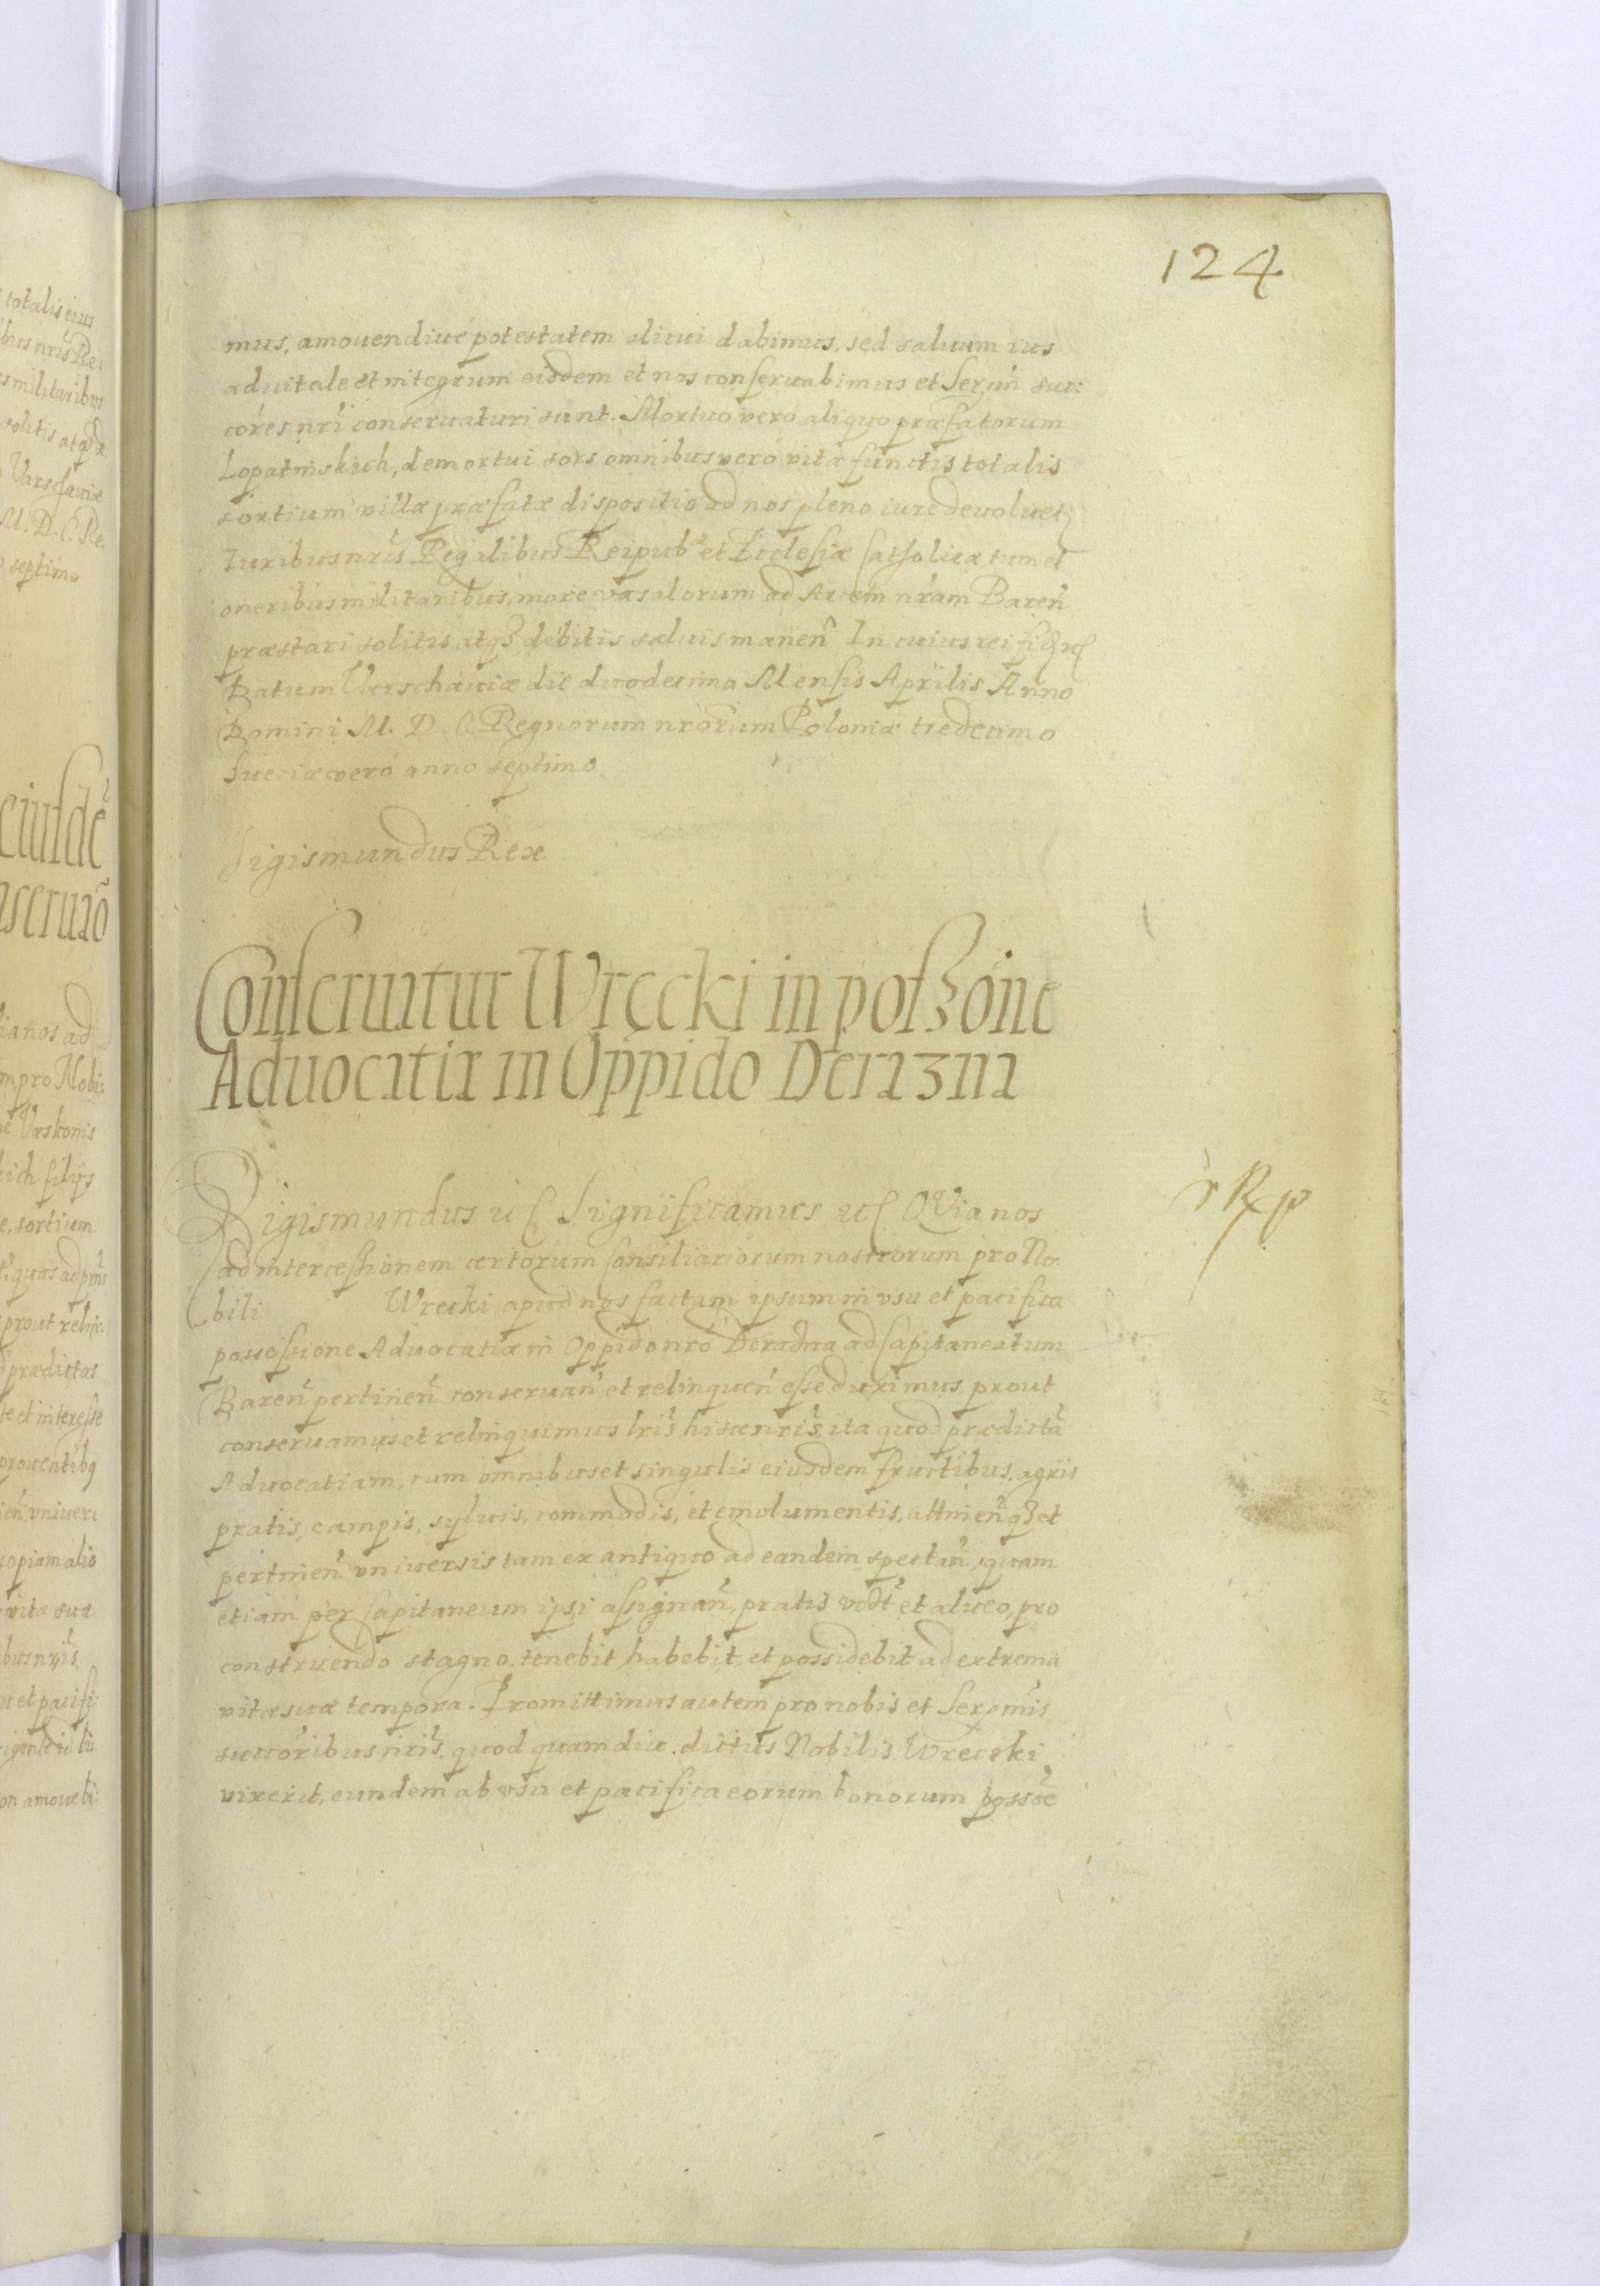 124
mus, amouendiue potestatem alicui dabimus, sed saluum ius
aduitale et integrum eisdem et nos conseruabimus et Serm̃i suc:
cōres nr̃i conseruaturi sunt. Mortuo vero aliquo præfatorum
Lopatinskich, demortui sors omnibus vero vita functis totalis
sortium villæ præfatæ dispositio ad nos pleno iure deuoluet
Iuribus nr̃is Regalibus Reipub et Ecclesiæ Catholicæ tum et
oneribus militaribus, more vasalorum ad Arcem nr̃am Bareñ
præstari solitis atqꝫ debitis saluis maneñ In cuius rei
Datum Varschauiæ die duodecima Mensis Aprilis Anno
Domini M. D. C. Regnorum nr̃orum Poloniæ tredecimo
Sueciæ vero anno septimo
Sigismundus Rex
Conseruatur Wrecki in posꝫone
Aduocatiæ in Oppido Deraznia
Sigismundus Significamus QVia nos
ad intercessionem certorum Consiliariorum nostrorum pro No:
bili Wrecki apud nos factam ipsum in vsu et pacifica
possessione Aduocatiæ in Oppido nr̃o ad Capitaneatum
Bareñ pertineñ conseruañ et relinqueñ esse duximus, prout
conseruamus et relinquimus lr̃is hisce nr̃is, ita quod prædictã
Aduocatiam, cum omnibus et singulis eiusdem fructibus, agris
pratis, campis, syluis, commodis, et emolumentis, attineñ qꝫ et
pertineñ vniuersis tam ex antiquo ad eandem spectañ, quam
etiam per Capitaneum ipsi assignañ, pratis vidt̃ et alueo, pro
construendo stagno. tenebit habebit, et possidebit ad extrema
vitæ suæ tempora. Promittimus autem pro nobis et Serm̃is
succōribus nr̃is, quod quamdiu dictus Nobilis Wrecski
vixerit, eundem ab vsu et pacifica eorum bonorum possōe